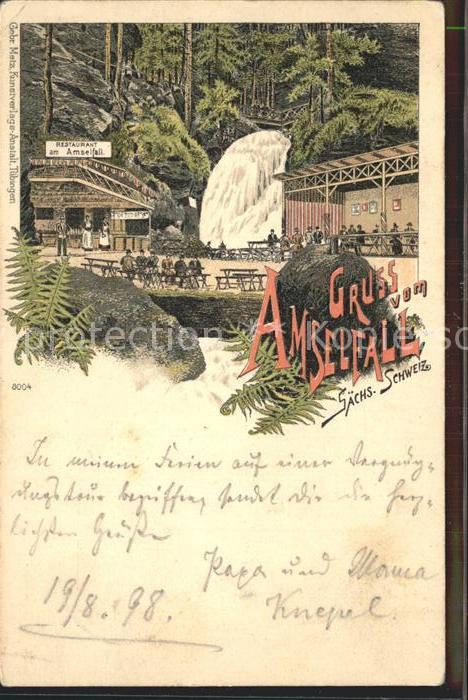 Gebr. Metz, Kunstverlags-Anstalt, Tübingen
RESTAURANT
am Amselfall.
GRUSS
VOM
AMSELFALL
SÄCHS. SCHWEIZ
8004
In meinen Ferien auf einer Vergnüg-
ungstour begriffen, sendet Dir die herz-
lichsten Grüße
Papa und Mama
19/8. 98.